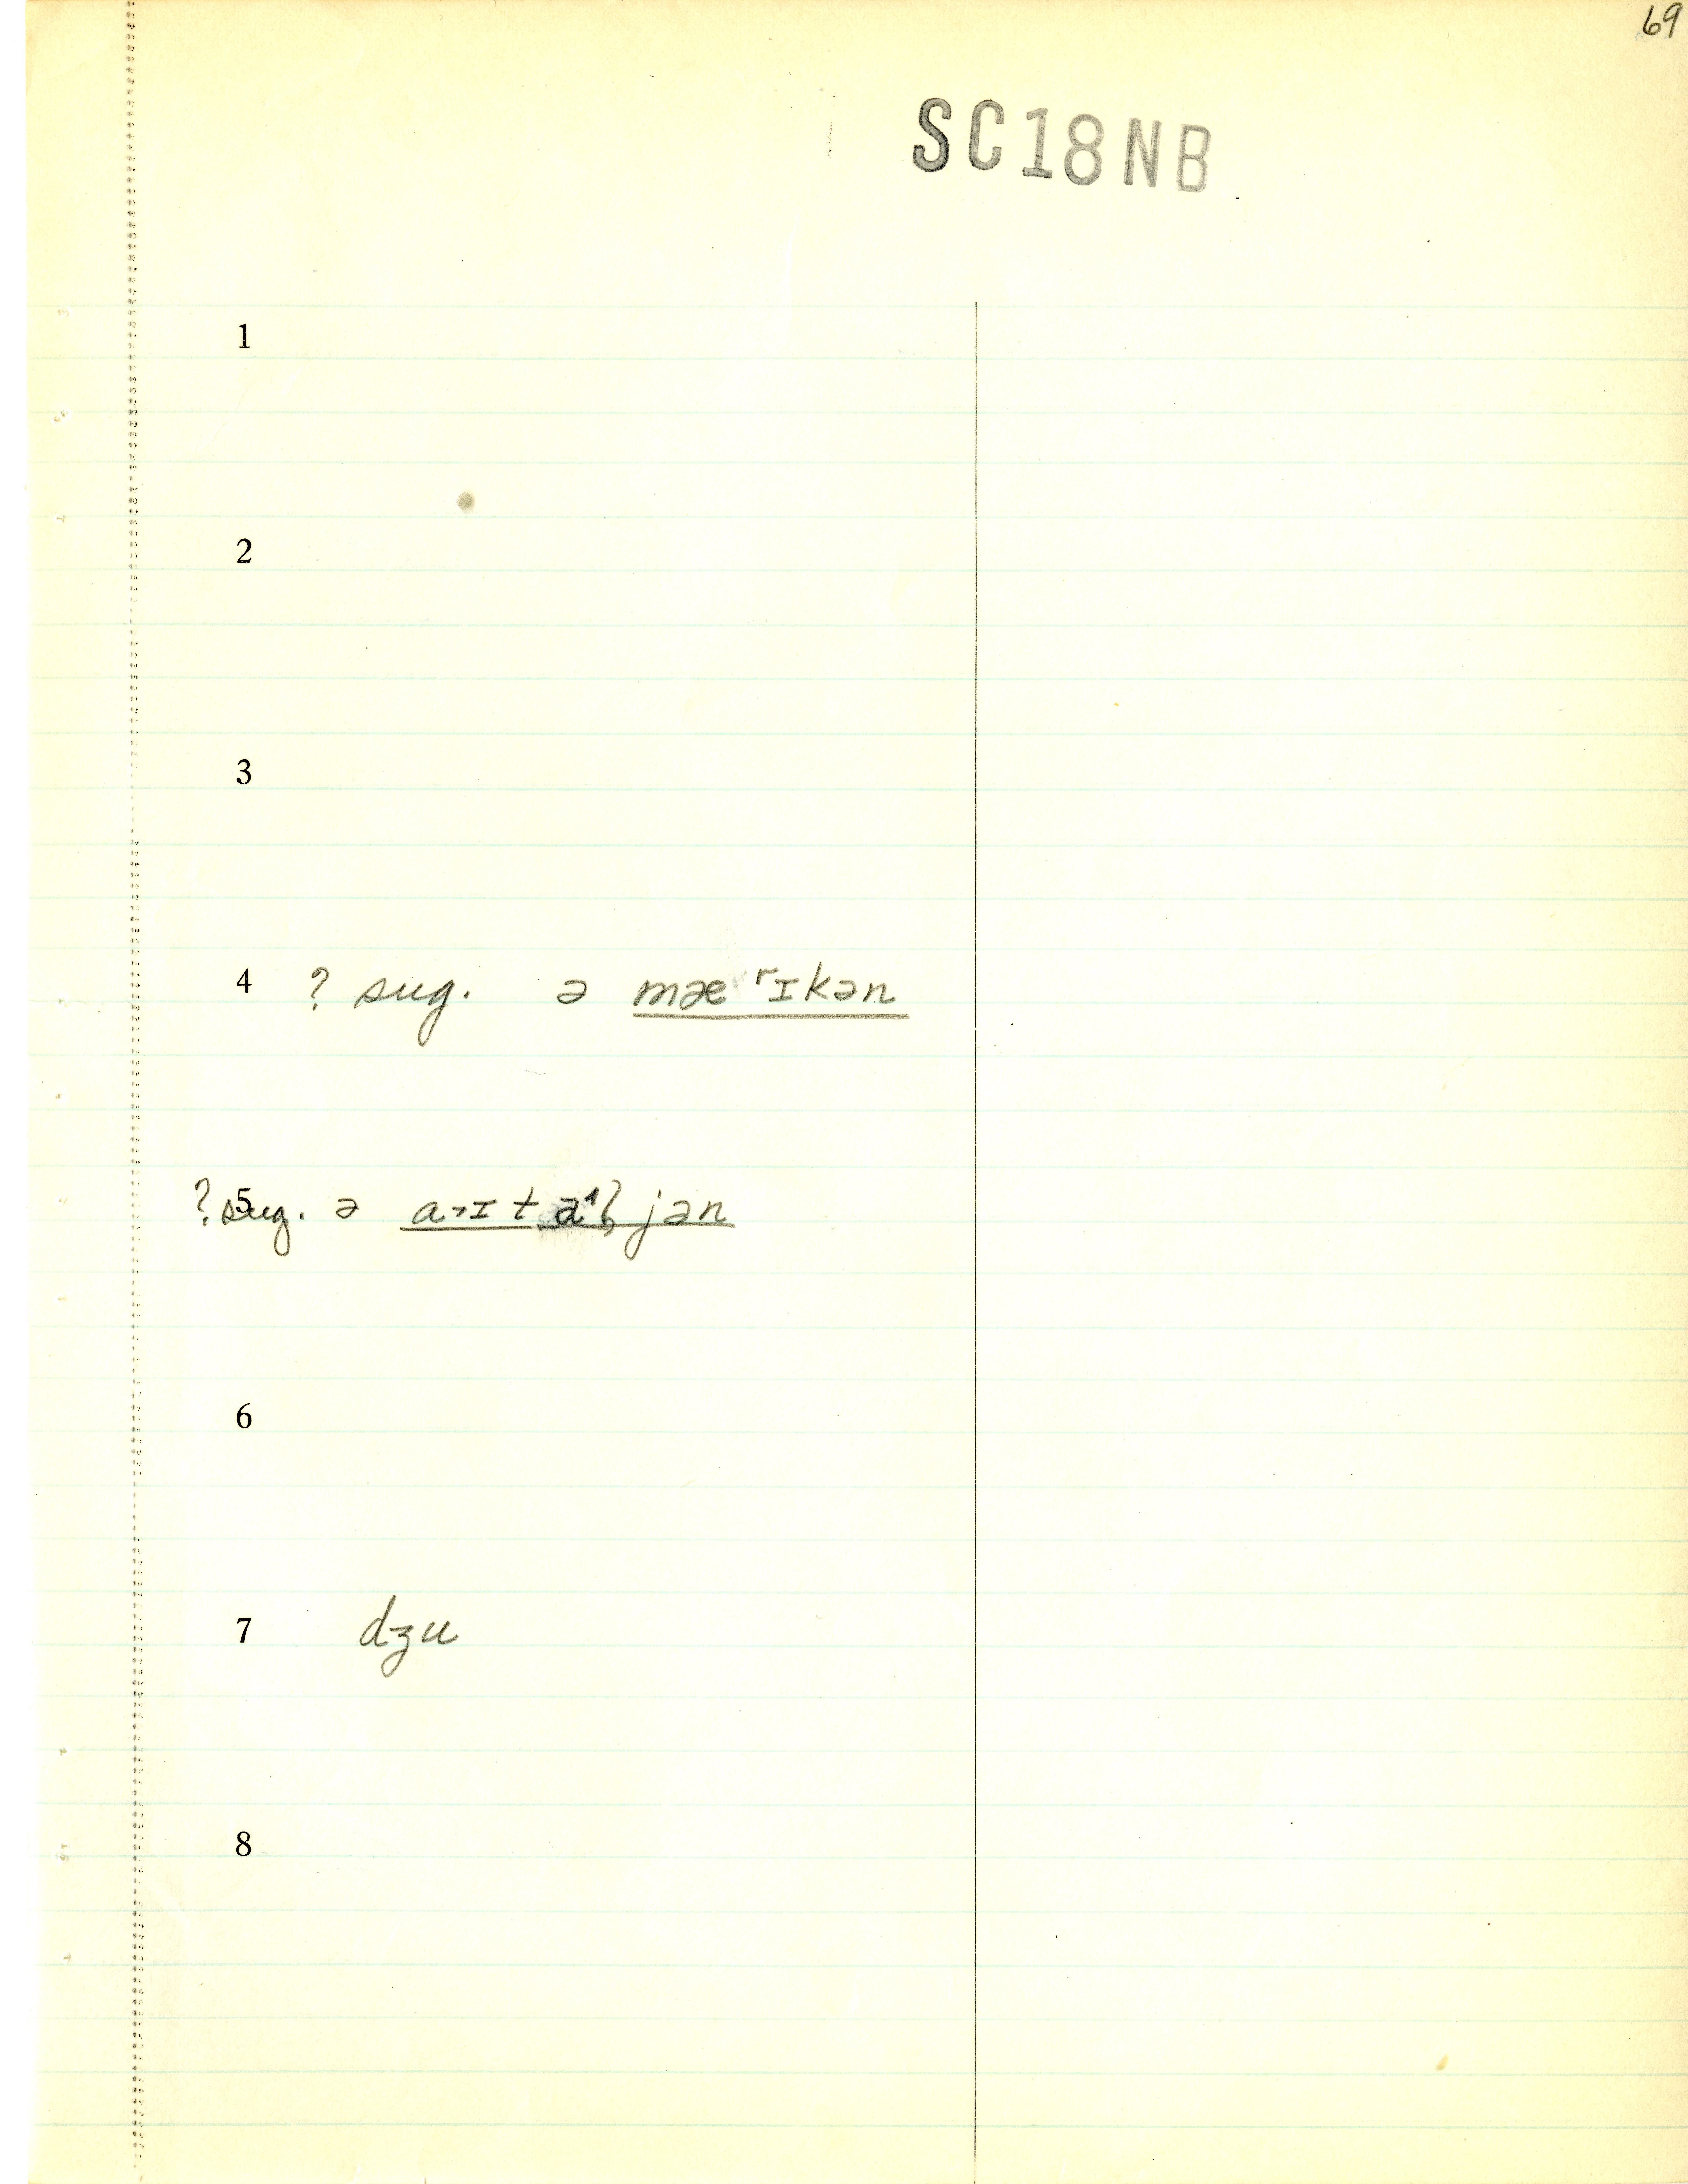 69
SC18NB
1
2
3
4 ? sug. ə mæ rɪkən
5 ? sug. ə
6
7 dʒu
8